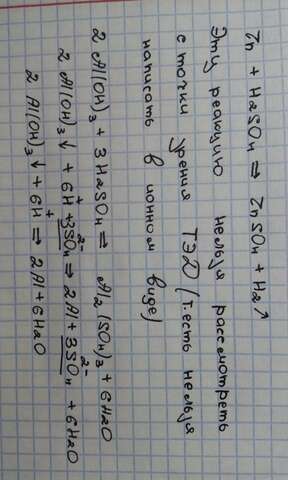 Zn + H2SO4 ⇒ ZnSO4 + H2↗
Эту реакцию нельзя рассмотреть
с точки зрения ТЭД (т.есть нельзя
написать в ионном виде)
2 Al(OH)3 + 3H2SO4 ⇒ Al2(SO4)3 + 6H2O
2 Al(OH)3↓ + 6H⁺ + 3SO4²⁻ ⇒ 2Al + 3SO4²⁻ + 6H2O
2 Al(OH)3↓ + 6H⁺ ⇒ 2Al + 6H2O